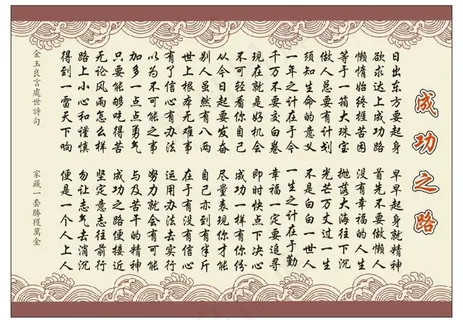 成功之路
日出东方要起身 早早起身就精神
欲求达上成功路 首先不要做懒人
懒惰始终经苦困 没有幸福的人生
等于一箱大珠宝 抛落大海往下沉
做人总要有计划 光芒万丈过一生
须知生命的意义 不是白白一世人
一年之计在于今 一生之计在于勤
千万不要交白卷 幸福一定要追寻
现在就是好机会 即时快点下决心
不可轻看你自己 成功一样有你份
从今日起要发奋 尽量表现你才能
别人虽然有八两 自己亦到有半斤
世上根本无难事 在于有没有信心
有了信心有办法 运用办法去实行
以为不可能之事 努力就会有可能
加多一点点勇气 与及苦干的精神
只要能够吃得苦 成功之路便接近
无论风雨怎么样 坚定意志往前行
路上小心和谨慎 勿让志气去消沉
得到一雷天下响 便是一个人上人
金玉良言處世詩句 家藏一套勝萬金